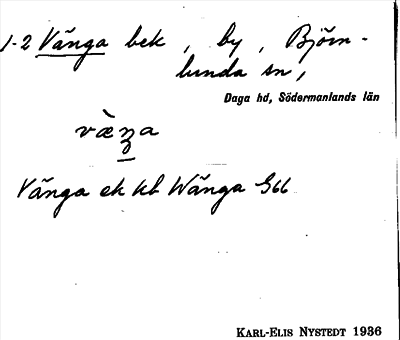 1-2 Vänga bek, by, Björn-
lunda sn,
Daga hd, Södermanlands län
Vänga ek kb Wänga G66
KARL-ELIS NYSTEDT 1936